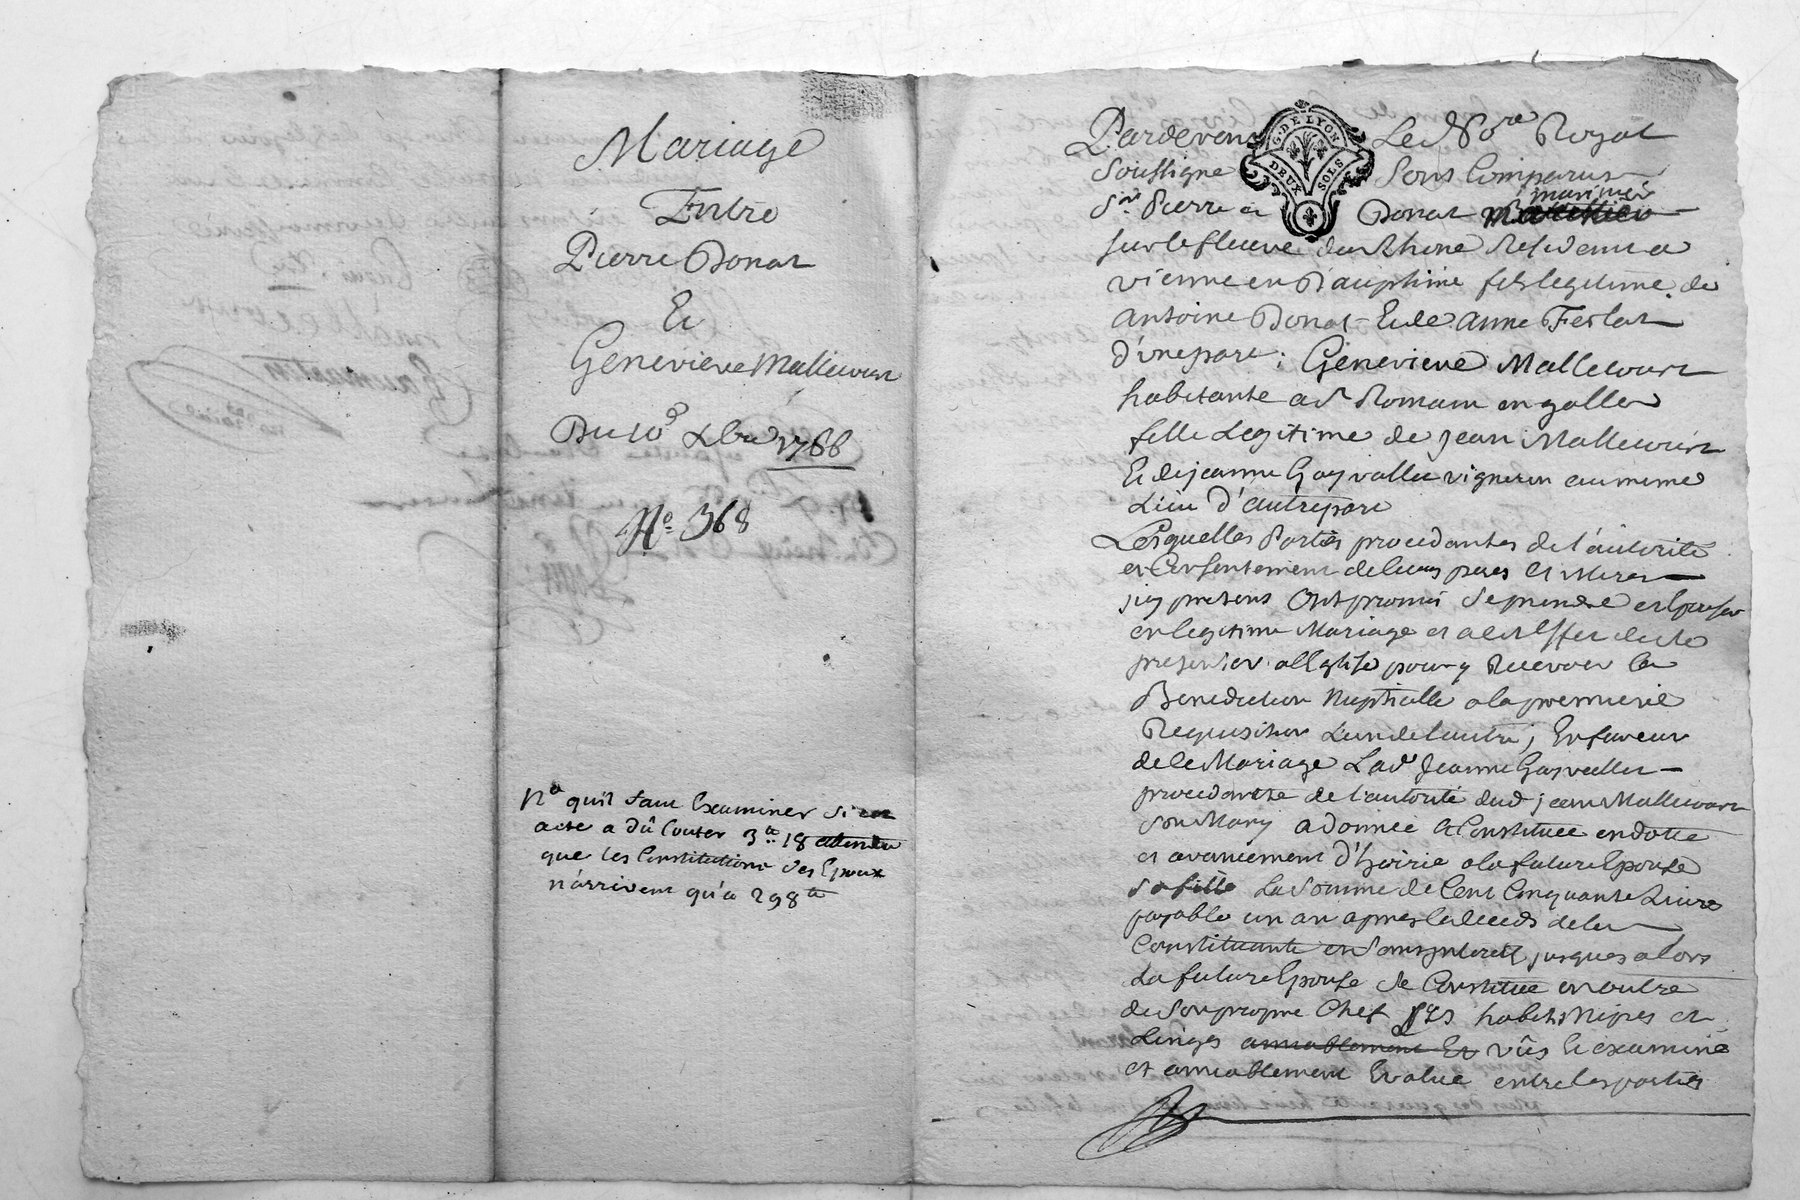 Mariage
Entre
Pierre Donat
Et
Genevieve Mallecourt
Du 10e Xbre 1766
No. 368
Na qu'il faut Examiner si cet
acte a dû Couter 3tt 18 attendu
que les Constitutions des Epoux
n'arrivent qu'a 298tt
G. DE LYON
DEUX SOLS
Pardevant Le No.re Royal
Soussigne Sont Comparus
Sr. Pierre Donat marinier
sur le fleuve du Rhone Residant a
vienne en Dauphiné fils legitime de
Antoine Donat Et de Anne Ferlat
d'une part; Genevieve Mallecourt
habitante a St Romain en galles
fille Legitime de Jean Mallecourt
Et de jeanne Gayvallet vigneron au meme
Lieu D'autre part
Lesquelles Parties procedantes de l'autorité
et Consentement de leurs peres Et Meres
icy presens Ont promis Se prendre et Epouser
en legitime Mariage et a cet Effet de se
presenter a l'Eglise pour y Recevoir la
Benediction Nuptialle a la premiere
Requisition L'un de l'autre; En faveur
de ce Mariage Lade Jeanne Gayvallet
procedante de l'autorité dud jean Mallecourt
son Mary a donnée Et Constituée en dotte
et avancement D'Hoirie a la future Epouse
sa fille La Somme de Cent Cinquante Livres
payable un an apres le deceds de la
Constituante et Sans interest jusques alors
La future Epouse Se Constitue en outre
de Son propre Chef Ses habits Nipes et
Linges amiablement Et vûs Et examiné
et amiablement Evalué entre les parties